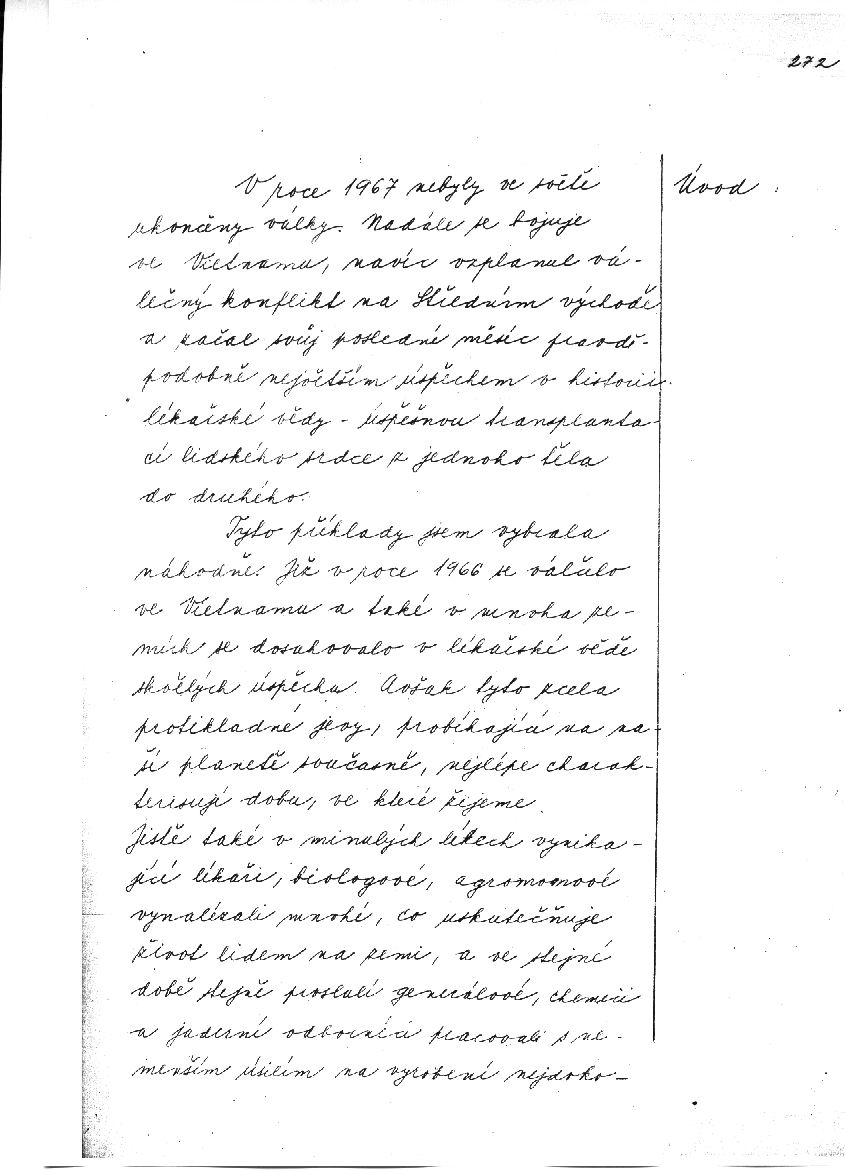 272
Úvod
V roce 1967 nebyly ve světě
ukončeny války. Nadále se bojuje
ve Vietnamu, navíc vzplanul vá-
lečný konflikt na Středním východě
a začal svůj poslední měsíc pravdě-
podobně největším úspěchem v historii
lékařské vědy - úspěšnou transplanta-
cí lidského srdce z jednoho těla
do druhého.
Tyto příklady jsem vybrala
náhodně. Již v roce 1966 se válčilo
ve Vietnamu a také v mnoha ze-
mích se dosahovalo v lékařské vědě
skvělých úspěchu. Avšak tyto zcela
protikladné jevy, probíhající na na-
ší planetě současně, nejlépe charak-
terisují dobu, ve které žijeme.
Jistě také v minulých létech vynika-
jící lékaři, biologové, agromomové
vynalézali mnohé, co uskutečňuje
život lidem na zemi, a ve stejné
době stejně proslulí generálové, chemici
a jaderní odborníci pracovali s ne-
menším úsilím na vyrobení nejdoko-